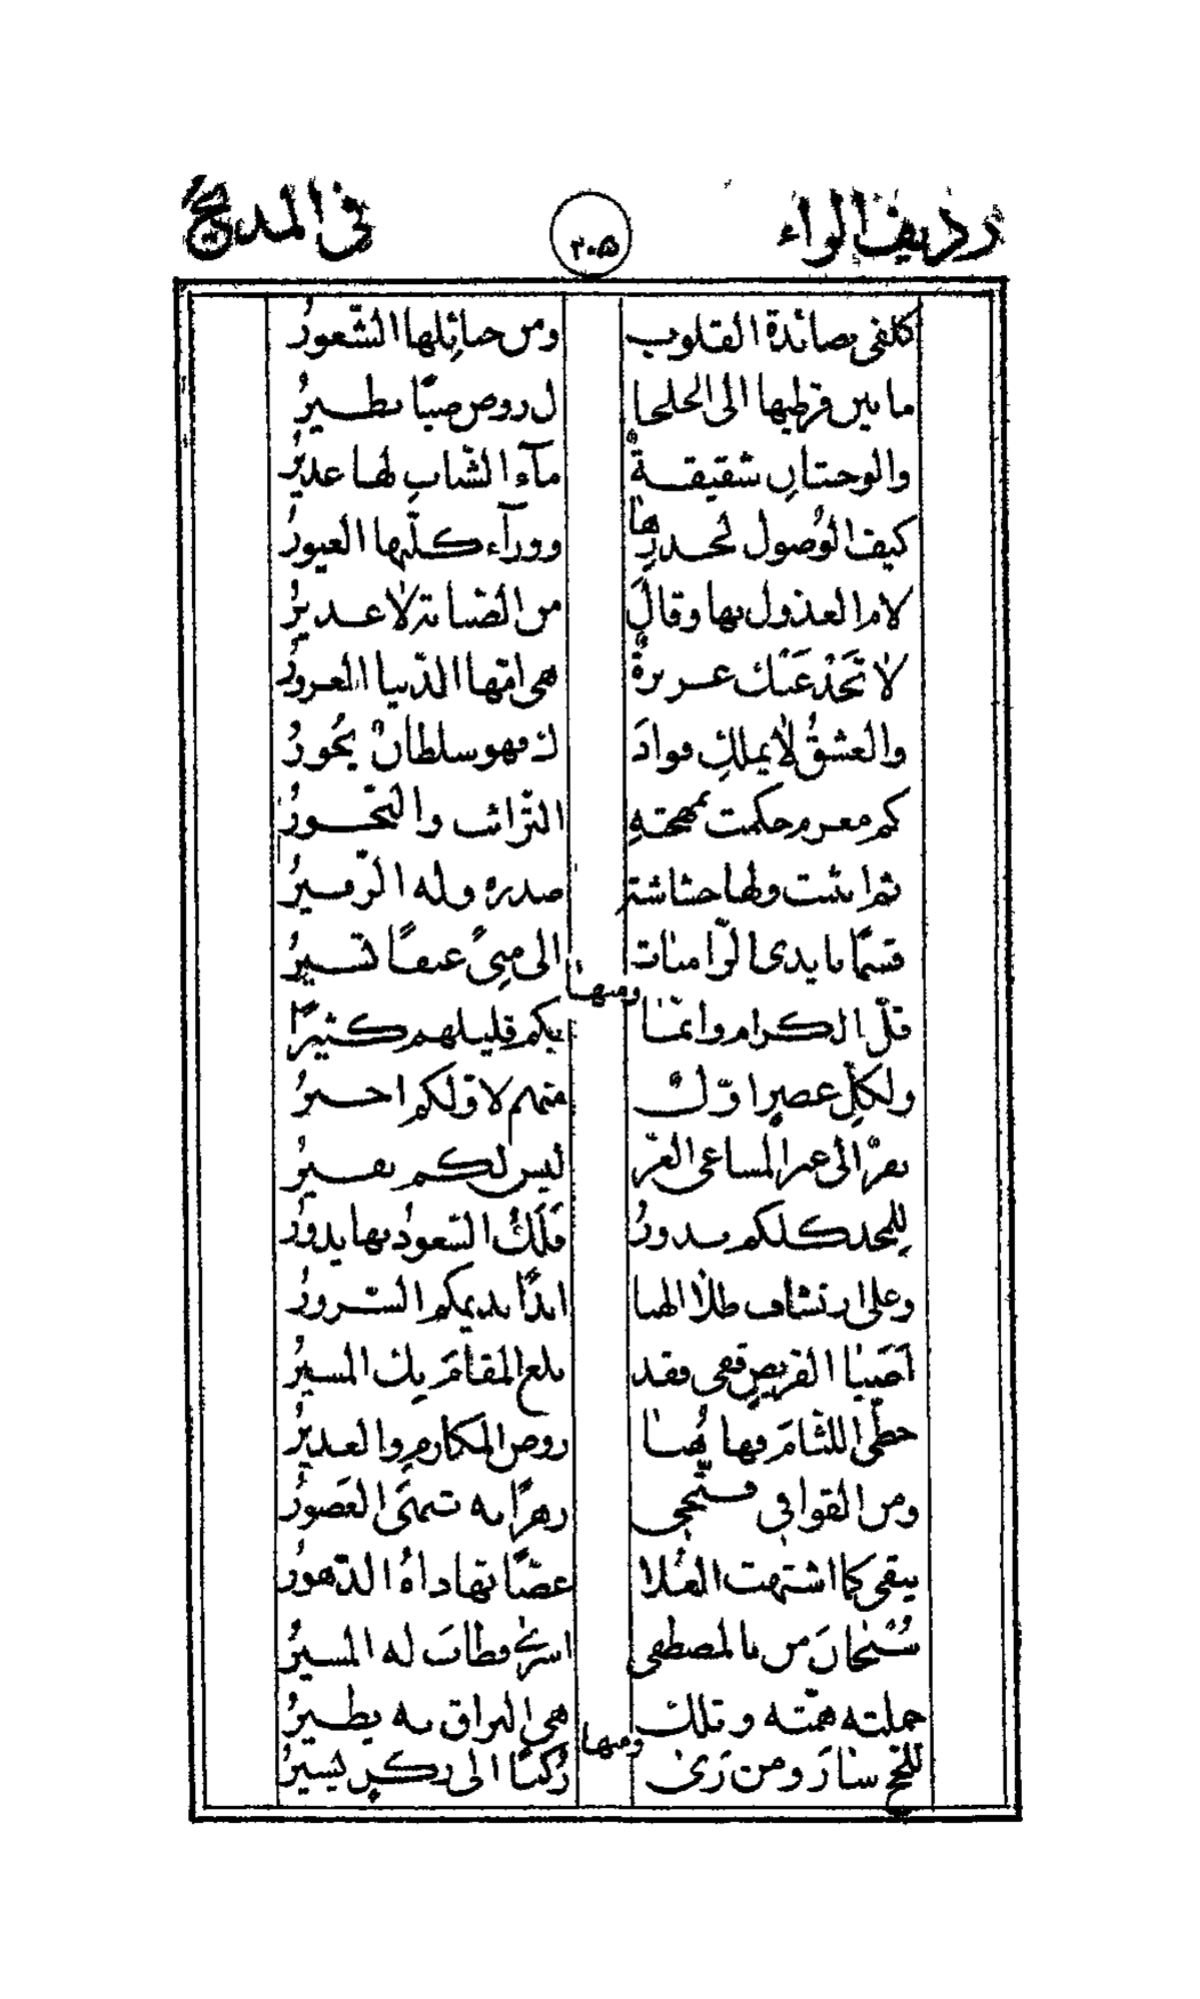 رديف الراء ٢٠٥ في المديح
كلفي بصائدة القلوب ومن حبائلها الشّعورُ
ما بين قرطيها الى الخلخا ل روض صبًا يطيرُ
والوجنتانِ شقيقةٌ مآء الشّبابِ لها غديرُ
كيف الوُصول لخدرِها وورآء كلّتها الغيورُ
لام العذول بها وقالَ من الضبابة لا عذيرُ
لا تَخْدَعَنْك غريرةٌ هي امّها الدّنيا الغرورُ
والعشقُ لا يملك فوادَ ك فهو سلطانٌ يَجورُ
كم مغرم حكمت بمهجتهِ التّرائب والنّحورُ
ثم انثنت ولها حشاشة صدره وله الزّفيرُ
قسمًا بايدى الرّامیات الى مِنىً عنقًا تسيرُ
ومنها
قلّ الكرام وانّما بكم قليلهم كثيرٌ
ولكلّ عصرٍ اوّلٌ منهم لاوّلكم اخيرُ
نفرٌ الى غير المساعى الغرّ ليس لكم نفيرُ
للمجد كلكم بدورُ فَلَكُ السّعودُ بها يدورُ
وعلى ارتشاف طلا الهبا ابدًا يديمكم السّرورُ
اَصَبَا القريض قفى فقد بلغ المقامَ بك المسيرُ
حطّى اللثامَ فها هُنا روض المكارم والغديرُ
ومن القوافي فتّحى زهرًا به تنمى العَصورُ
يبقى كما اشتهت العُلا غضًّا تهاداهُ الدّهورُ
سُبْحانَ من بالمصطفى اسرىٰ وطابَ له المسيرُ
حملته همّته وتلك هي البراق به يطيرُ
ومنها
للحج سارَ ومن رَئى رُكنًا الى ركنٍ يسيرُ